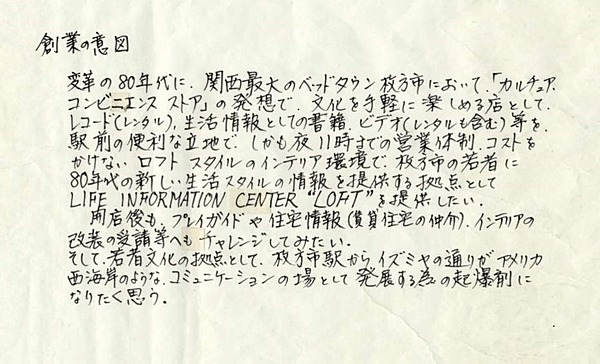 創業の意図
変革の80年代に、関西最大のベッドタウン枚方市において、「カルチュア
コンビニエンス ストア」の発想で、文化を手軽に楽しめる店として、
レコード(レンタル)、生活情報としての書籍、ビデオ(レンタルも含む)等を、
駅前の便利な立地で、しかも夜11時までの営業体制、コストを
かけない ロフト スタイルのインテリア環境で、枚方市の若者に
80年代の新しい生活スタイルの情報を提供する拠点として
LIFE INFORMATION CENTER "LOFT"を提供したい。
開店後も、プレイガイドや住宅情報(賃貸住宅の仲介)、インテリアの
改装の受請等へも チャレンジしてみたい。
そして、若者文化の拠点として、枚方市駅からイズミヤの通りがアメリカ
西海岸のような、コミュニケーションの場として発展する為の起爆剤に
なりたく思う。